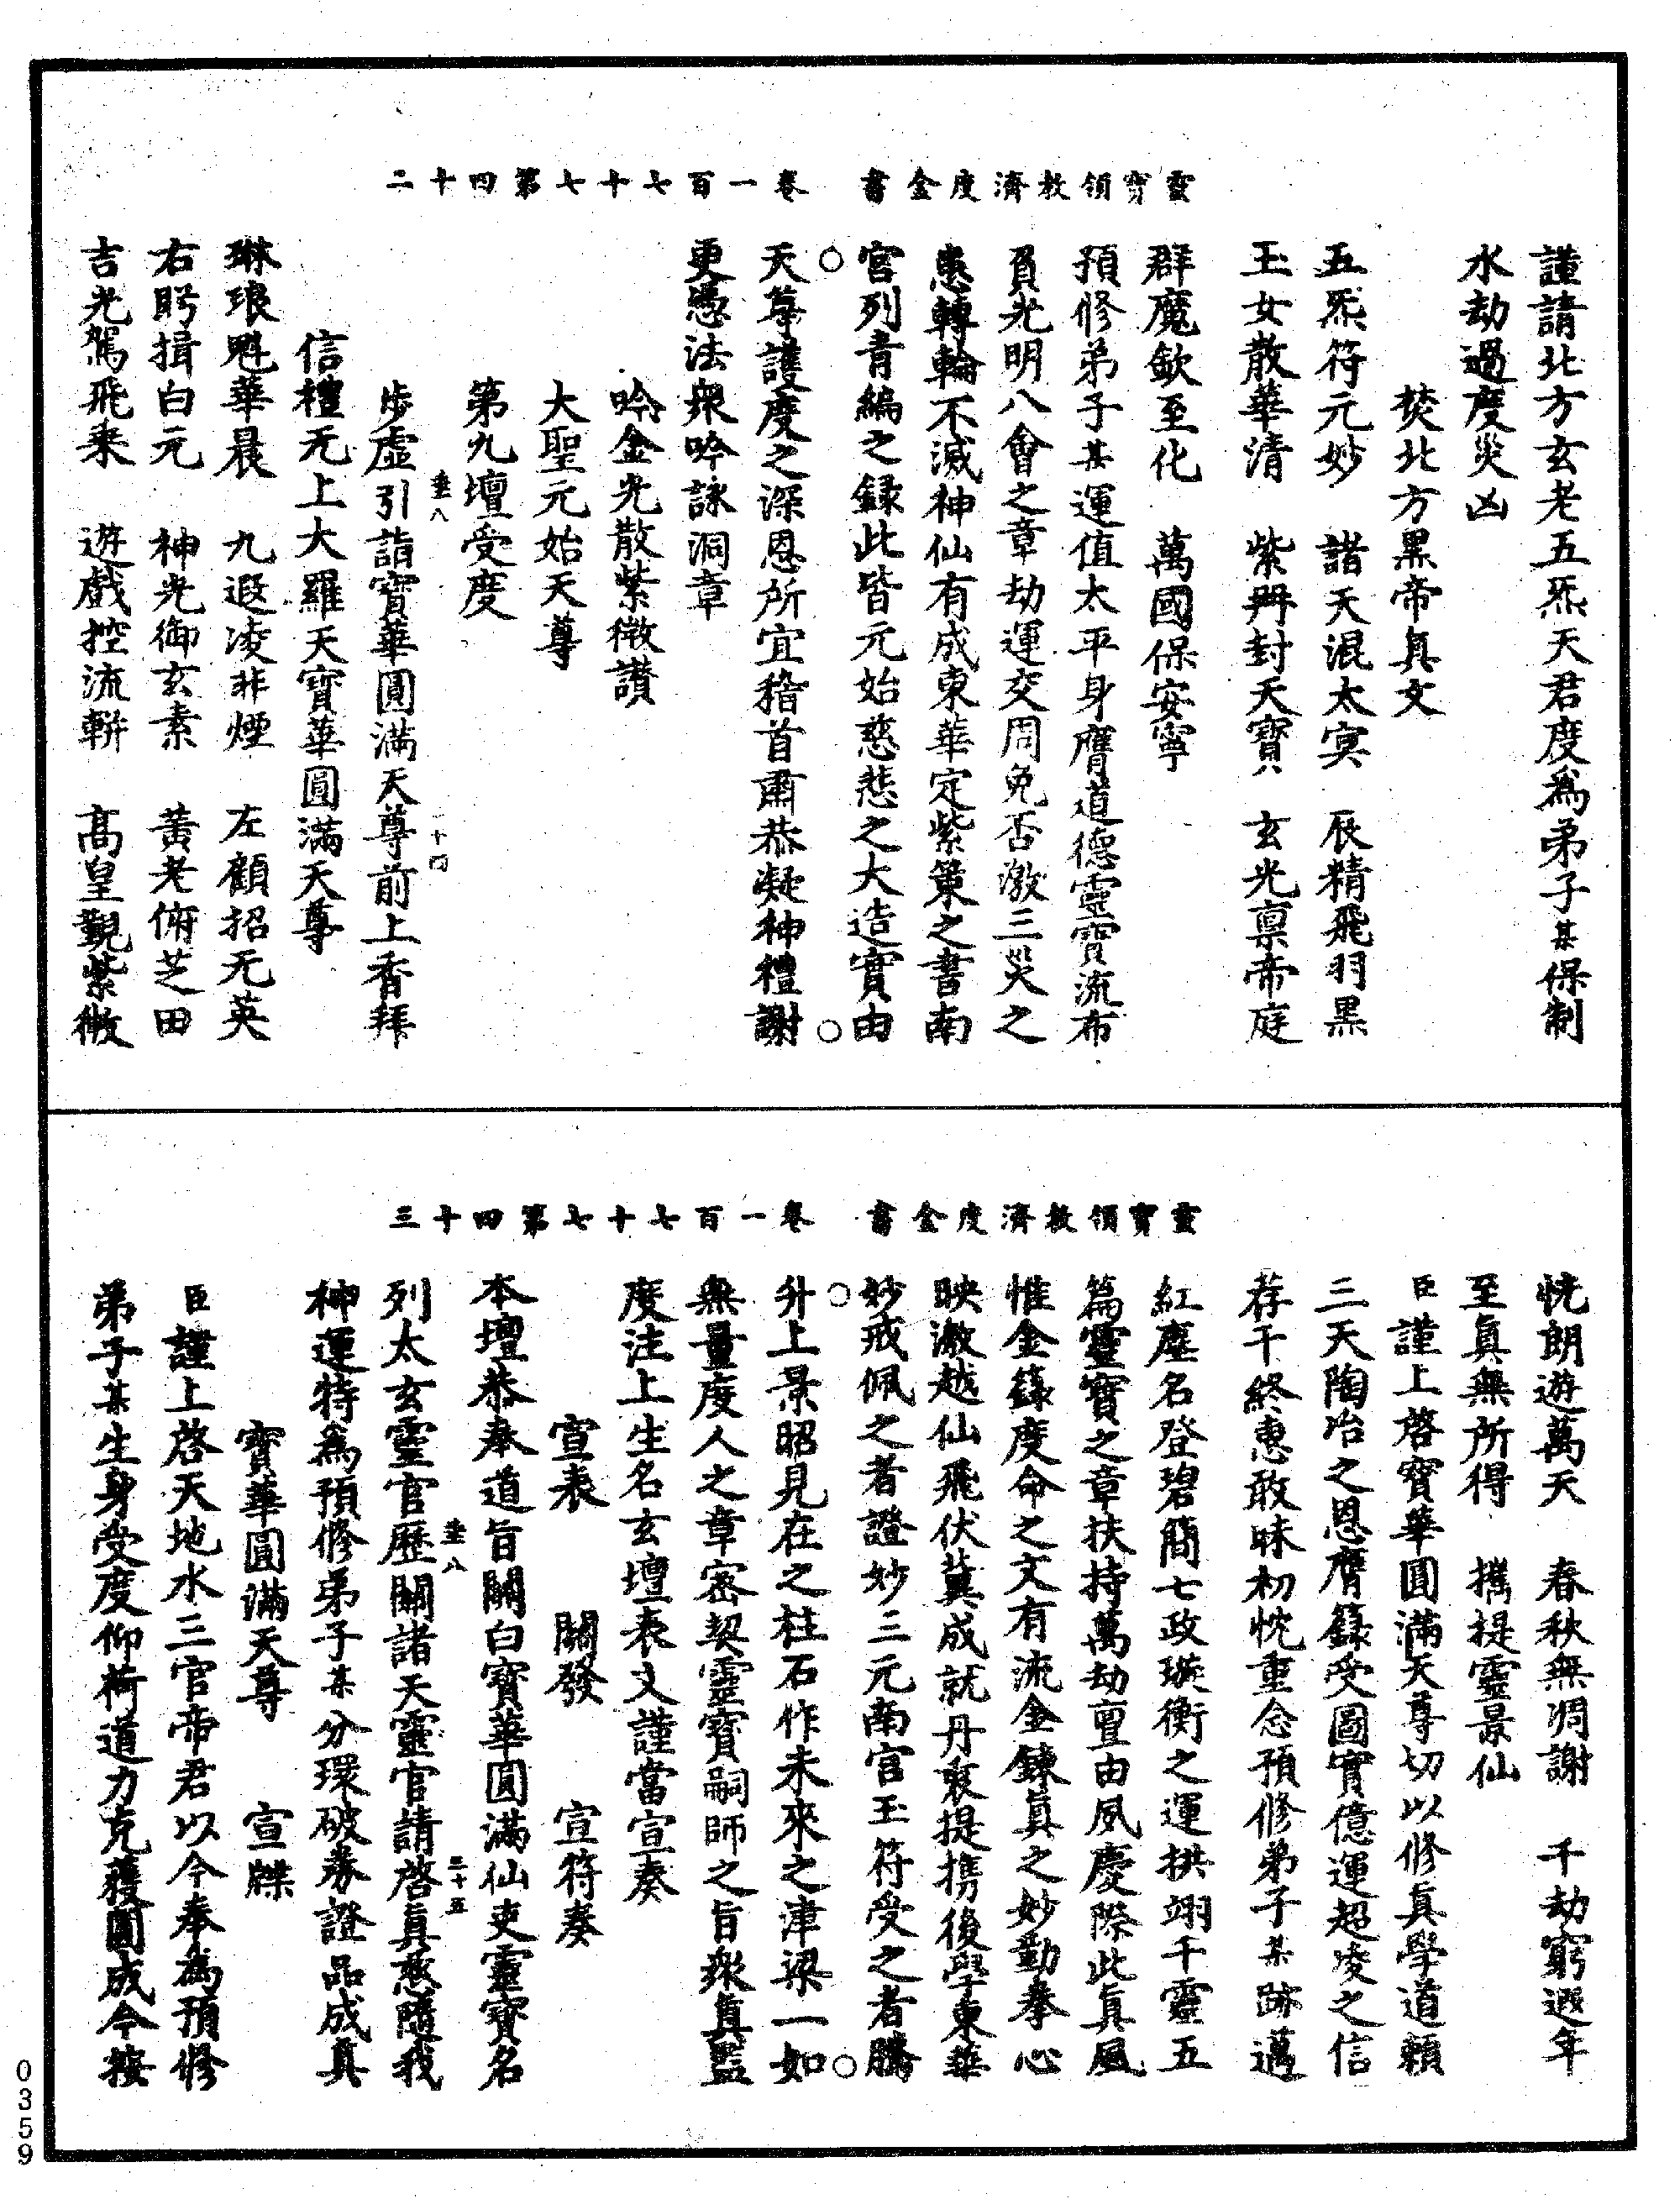 靈寶領教濟度金書 卷一百七十七第四十二
謹請北方玄老五炁天君度為弟子某保制
水劫過度災凶
焚北方黑帝真文
五炁符元妙 諸天混太㝠 辰精飛羽黑
玉女散華清 紫冊封天寶 玄光禀帝庭
群魔欽至化 萬國保安寧
預修弟子某運值太平身膺道德靈寶流布
負光明八會之章劫運交周免否激三災之
患轉輪不滅神仙有成東華定紫策之書南
宮列青編之録此皆元始慈悲之大造實由
天尊護度之深恩所宜稽首肅恭凝神禮謝
更憑法衆吟詠洞章
吟金光散紫微讃
大聖元始天尊
第九壇受度
垂八 二十四
步虛引詣寶華圓滿天尊前上香拜
信禮无上大羅天寶華圓滿天尊
琳琅魁華晨 九遐凌非煙 左顧招无英
右盻揖白元 神光御玄素 黃老俯芝田
吉光駕飛来 遊戲控流軿 高皇觀紫微
靈寶領教濟度金書 卷一百七十七第四十三
恍朗遊萬天 春秋無凋謝 千劫窮遐年
至真無所得 攜提靈景仙
臣謹上啓寶華圓滿天尊切以修真學道賴
三天陶冶之恩膺籙受圖實億運超凌之信
荐干終惠敢昧初忱重念預修弟子某跡邁
紅塵名登碧簡七政璇衡之運拱翊千靈五
篇靈寶之章扶持萬劫亶由夙慶際此真風
惟金籙度命之文有流金鍊真之妙勤拳心
映激越仙飛伏冀成就丹衷提携後學東華
妙戒佩之者證妙三元南宮玉符受之者騰
升上景昭見在之柱石作未來之津梁一如
無量度人之章密契靈寶嗣師之旨衆真監
度注上生名玄壇表文謹當宣奏
宣表 關發 宣符奏
本壇恭奉道旨關白寶華圓滿仙吏靈寶名
垂八 二十五
列太玄靈官歷關諸天靈官請啓真慈隨我
神運特為預修弟子某分環破券證品成真
寶華圓滿天尊 宣牒
臣謹上啓天地水三官帝君以今奉為預修
弟子某生身受度仰荷道力克獲圓成今按
0359